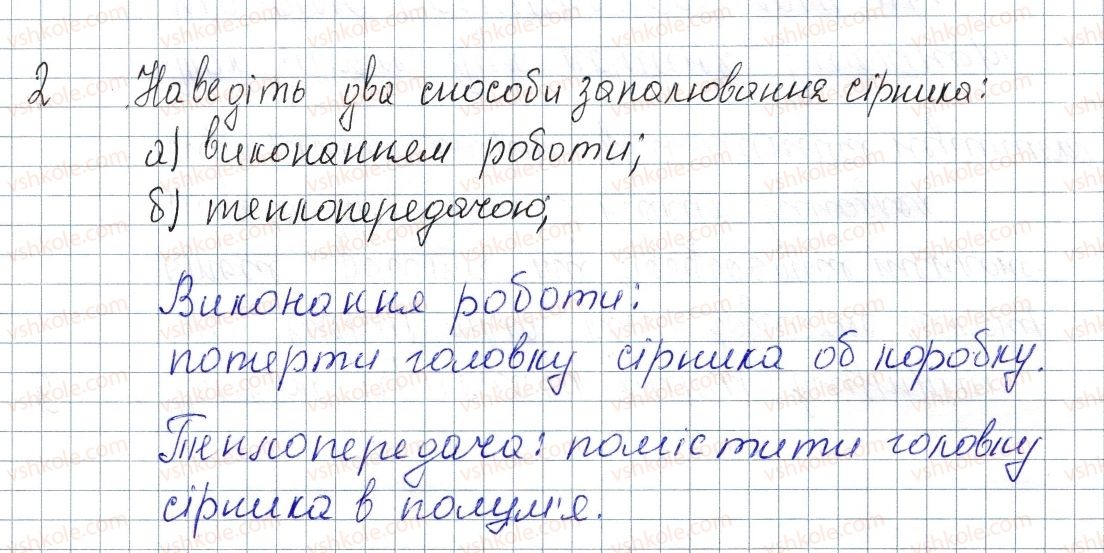 2 Наведіть два способи запалювання сірника:
а) виконанням роботи;
б) теплопередачою;
Виконання роботи:
потерти головку сірника об коробку.
Теплопередача: помістити головку
сірника в полум'я.